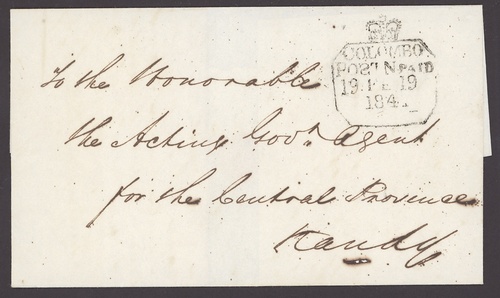 COLOMBO
POST NPAID
19 FE 19
184
To the Honorable
the Acting Govt. Agent
for the Central Province
Kandy